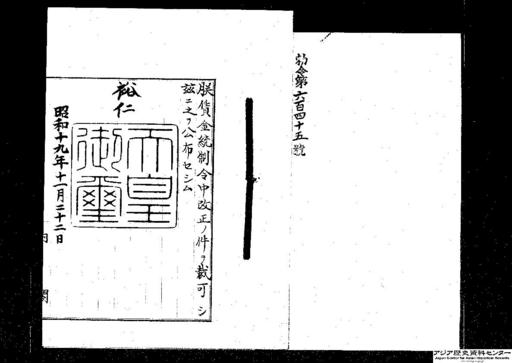 勅令第六百四十五號
朕賃金統制令中改正ノ件ヲ裁可シ
茲ニ之ヲ公布セシム
裕仁
天皇
御璽
昭和十九年十一月二十二日
内閣
アジア歴史資料センター
Japan Center for Asian Historical Records